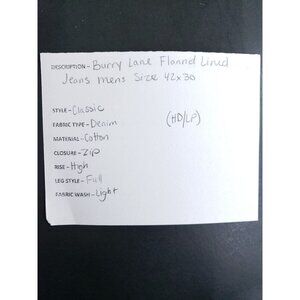 DESCRIPTION - Burry Lane Flannel Lined
Jeans Mens Size 42x30
STYLE - Classic
FABRIC TYPE - Denim (HD/LP)
MATERIAL - Cotton
CLOSURE - Zip
RISE - High
LEG STYLE - Full
FABRIC WASH - Light